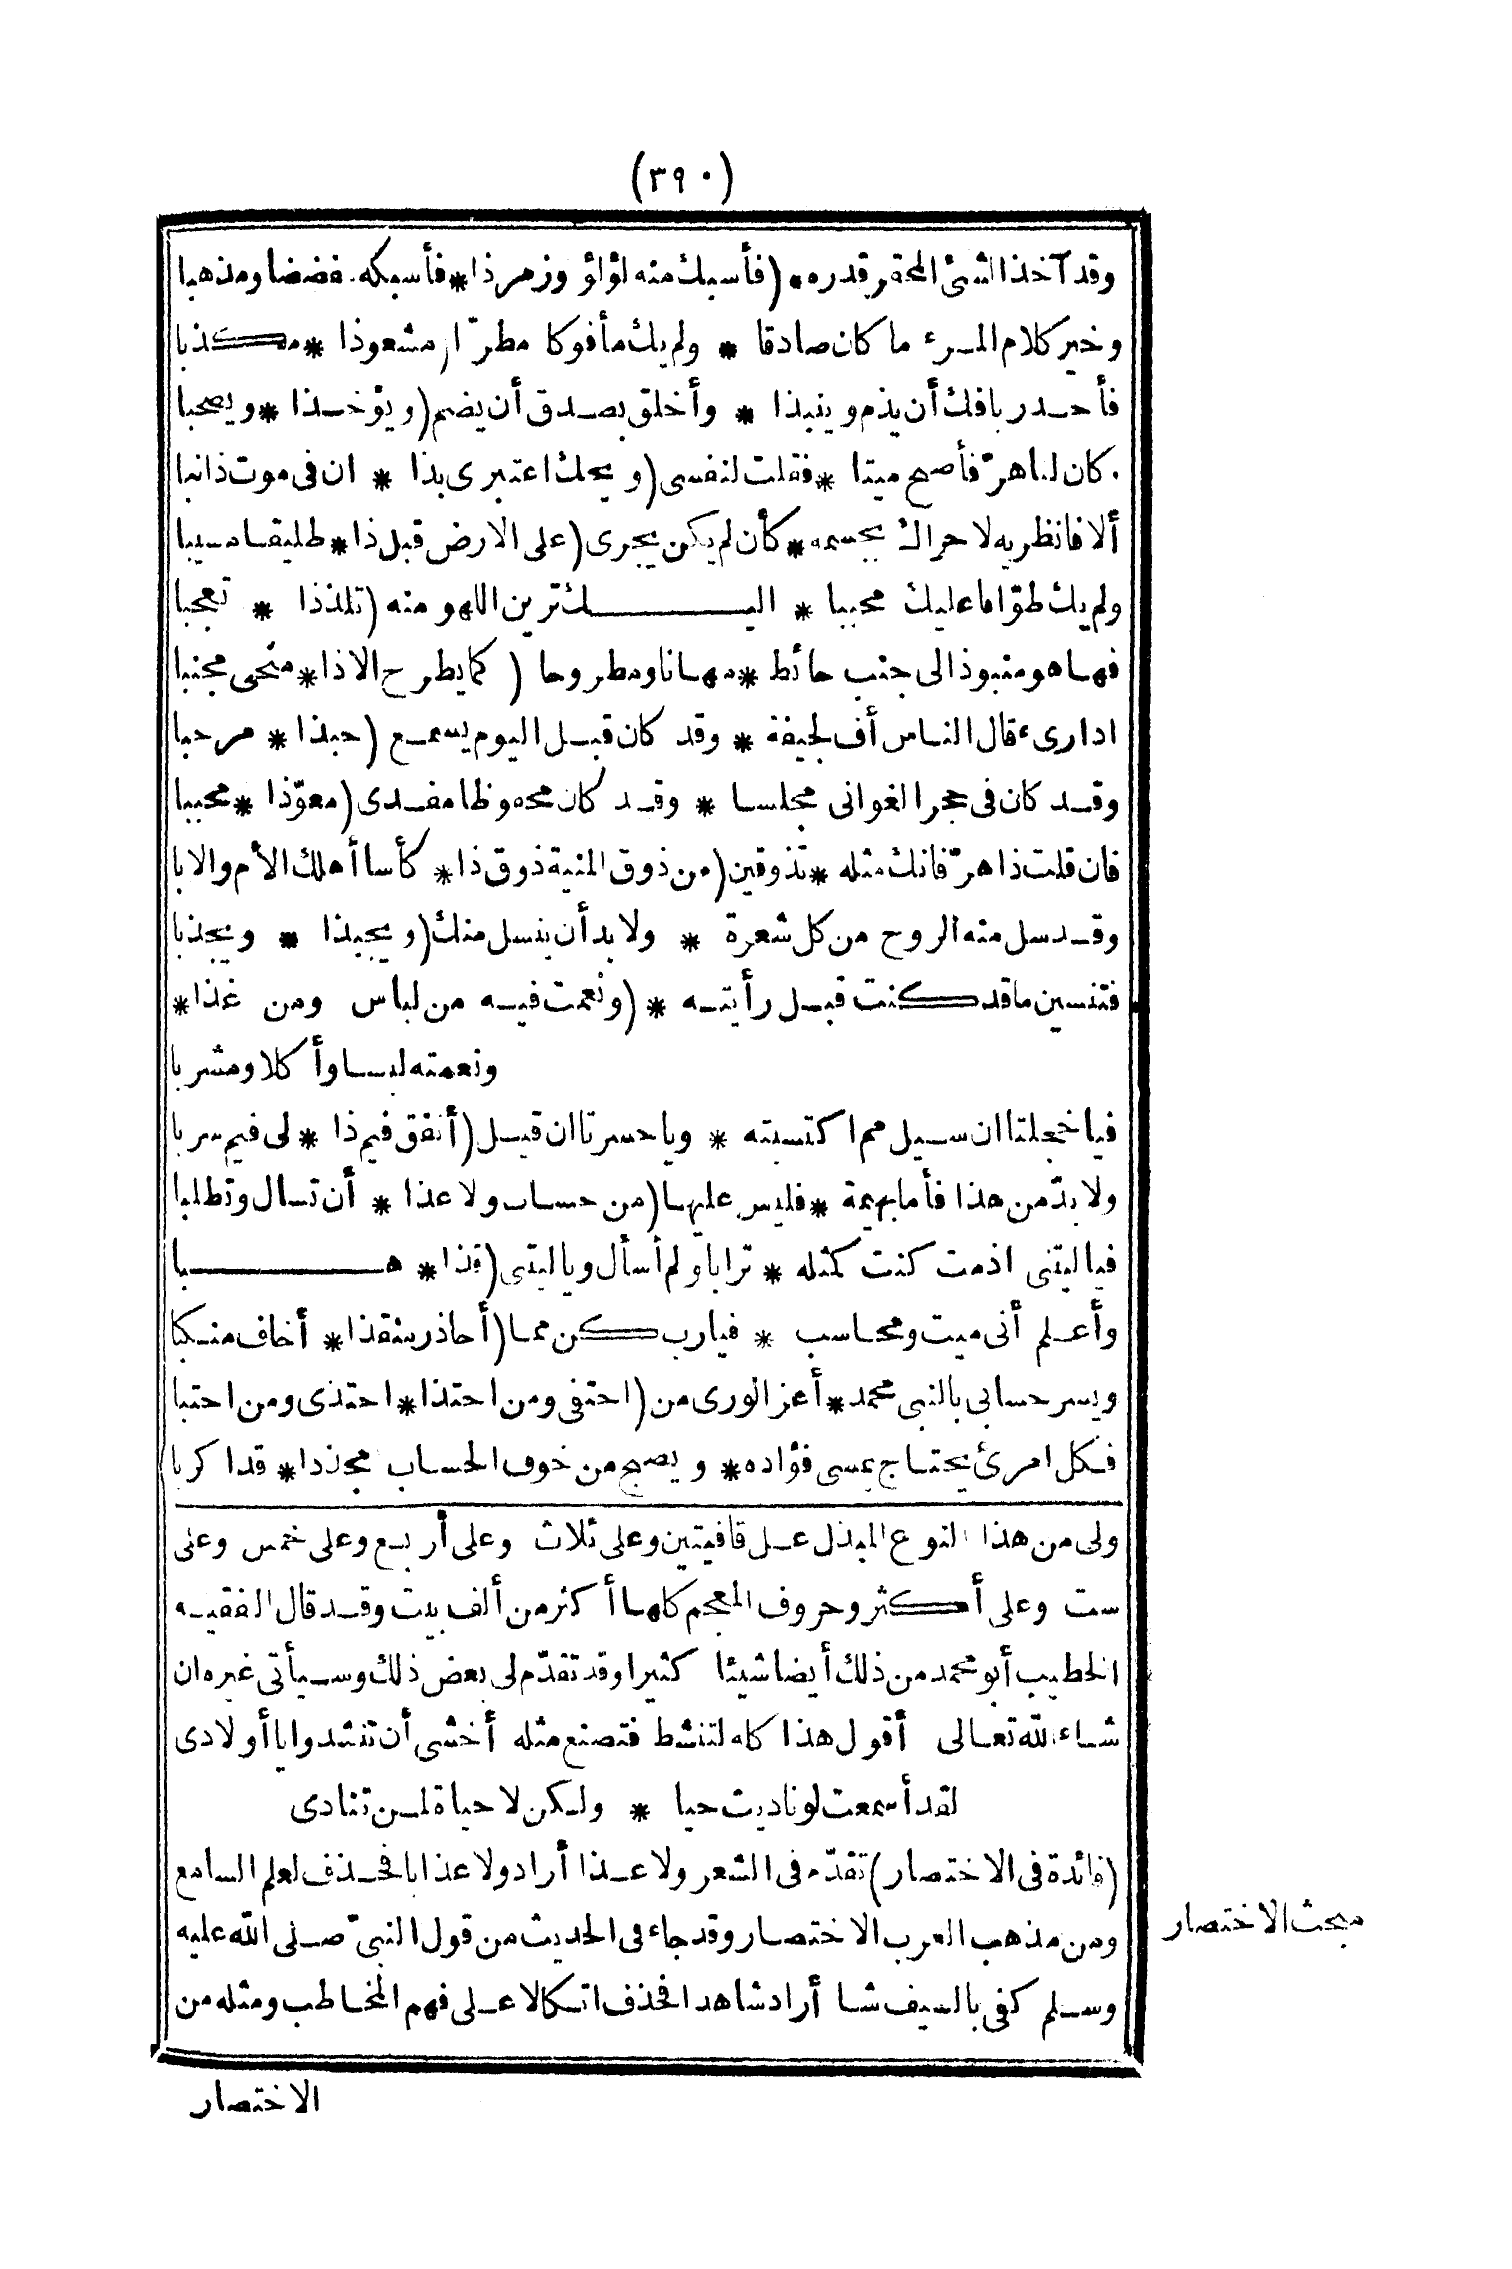 (٣٩٠)
وقد آخذ الشئ المحقر قدره * (فأسبك منه لؤلؤ وزمرذا * فأسبكه مفضضا ومذهبا
وخير كلام المرء ما كان صادقا * ولم يك مأفوكا مطرّا (مشعوذا * مكذبا
فأحدر بافك أن يذم وينبذا * وأخلق بصدق أن يضم (ويؤخذا * ويصحبا
كان لنا هرّ فأصبح ميتا * فقلت لنفسى (ويحك اعتبرى بذا * ان فى موت ذا نبا
ألا فانظريه لا حراك بجسمه * كأن لم يكن يجرى (على الارض قبل ذا * طليقا مسيبا
ولم يك طوّافا عليك محببا * اليك ترين اللهو منه (تلذذا * تعجبا
فها هو منبوذ الى جنب حائط * مهانا ومطروحا (كما يطرح الاذا * منحى مجنبا
اذا رىء قال الناس أف لجيفة * وقد كان قبل اليوم يسمع (حبذا * مرحبا
وقد كان فى حجر الغوانى مجلسا * وقد كان محفوظا مفدى (معوّذا * محببا
فان قلت ذا هرّ فانك مثله * تذوقين (من ذوق المنية ذوق ذا * كأسا أهلك الأم والابا
وقد سل منه الروح من كل شعرة * ولا بد أن ينسل منك (ويجبذا * ويجذبا
فتنسين ما قد كنت قبل رأيته * (ونعمت فيه من لباس ومن غذا *
ونعمته لبسا وأكلا ومشربا
فيا خجلتا ان سيل مم اكتسبته * ويا حسرتا ان قيل (أنفق فيم ذا * لى فيم سربا
ولا بدّ من هذا فأما بهيمة * فليس عليها (من حساب ولا عذا * أن تسال وتطلبا
فيا ليتنى اذ مت كنت كمثله * ترابا ولم أسأل ويا ليتنى (قذا * هبا
وأعلم أنى ميت ومحاسب * فيارب كن مما (أحاذر منقذا * أخاف منكبا
ويسر حسابى بالنبى محمد * أعز الورى من (احتفى ومن احتذا * احتذى ومن احتبا
فكل امرئ يحتاج يمسى فؤاده * ويصبح من خوف الحساب مجذذا * قد اكربا
ولى من هذا النوع المبذل على قافيتين وعلى ثلاث وعلى أربع وعلى خمس وعلى
ست وعلى أكثر وحروف المعجم كلها أكثر من ألف بيت وقد قال الفقيه
الخطيب أبو محمد من ذلك أيضا شيئا كثيرا وقد تقدّم لى بعض ذلك وسيأتى غيره ان
شاء الله تعالى أقول هذا كله لتنشط فتصنع مثله أخشى أن تنشدوا يا أولادى
لقد أسمعت لو ناديت حيا * ولكن لا حياة لمن تنادى
(فائدة فى الاختصار) تقدّم فى الشعر ولا عذا أراد ولا عذابا فحذف لعلم السامع
ومن مذهب العرب الاختصار وقد جاء فى الحديث من قول النبىّ صلى الله عليه
وسلم كفى بالسيف شا أراد شاهدا فحذف اتكالا على فهم المخاطب ومثله من
مبحث الاختصار
الاختصار